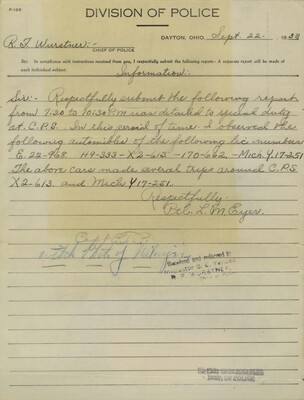 F-103
DIVISION OF POLICE
DAYTON, OHIO, Sept. 22. 193
R. F. Wurstner.
CHIEF OF POLICE
Sir: In compliance with instructions received from you, I respectfully submit the following report:- A separate report will be made of
each individual subject.
Information.
Sir:- Respectfully submit the following report
from 7:30 to 10:30 P.M was detailed to special duty
at C.P.S. In this peroid of time I observed the
following automobiles of the following lic numbers
E. 22-968. H9-333- X2-613- 170-662 -Mich. Y.17-251
The above cars made several trips around C.P.S.
X2-613. and Mich Y17-251.
Respectfully.
Ptl. L. M. Eyer.
Received and referred to
Inspector
R. F. WURSTNER,